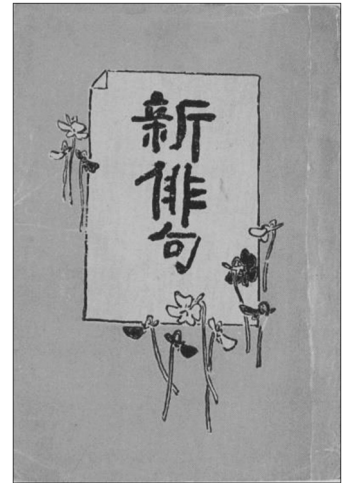 新俳句